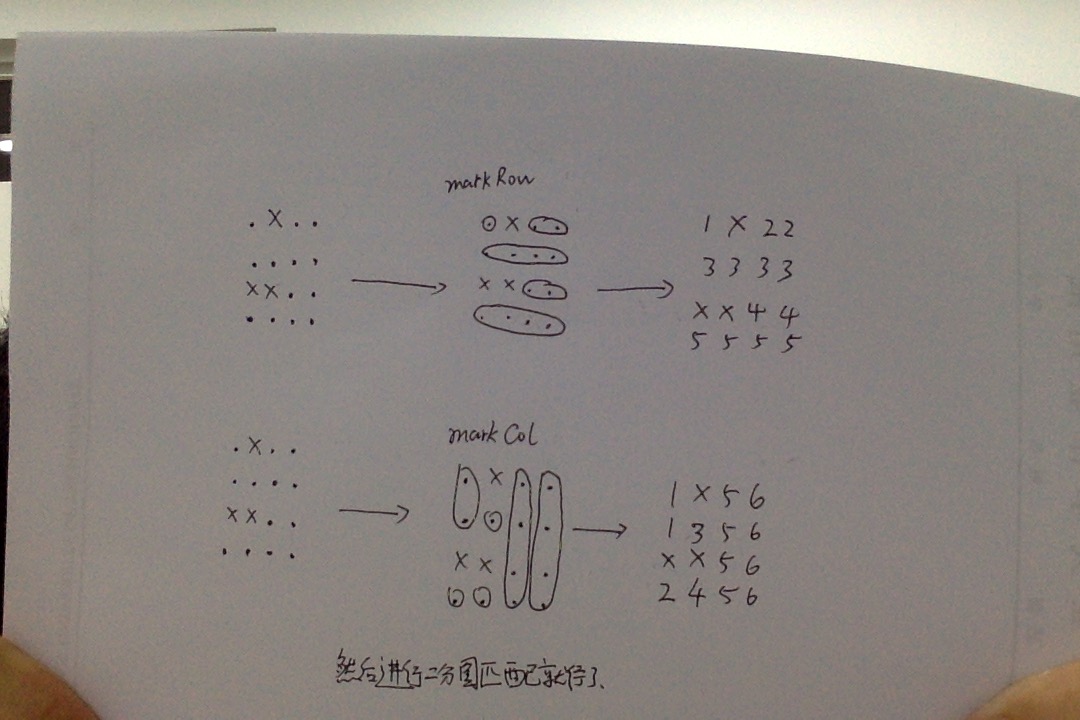 markRow
. X . .
. . . .
X X . .
. . . .
. X . .
. . . .
X X . .
. . . .
1 X 2 2
3 3 3 3
X X 4 4
5 5 5 5
markCol
. X . .
. . . .
X X . .
. . . .
. X . .
. . . .
X X . .
. . . .
1 X 5 6
1 3 5 6
X X 5 6
2 4 5 6
然后进行二分图匹配就行了.